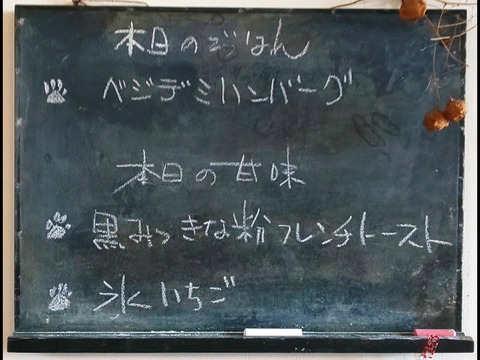 本日のごはん
ベジデミハンバーグ
本日の甘味
黒みつきな粉フレンチトースト
氷いちご